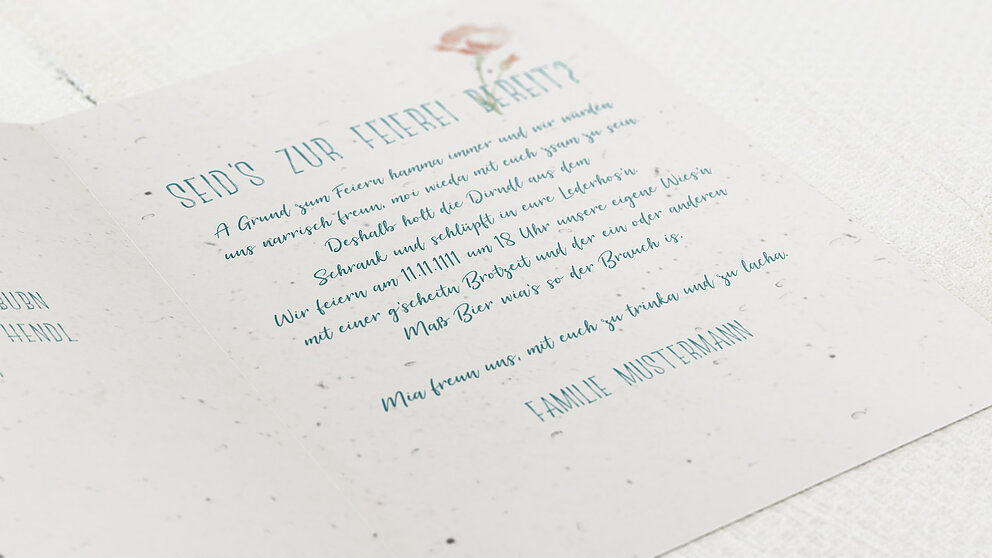 SEID'S ZUR FEIEREI BEREIT?
A Grund zum Feiern hamma immer und wir würden
uns narrisch freun, moi wieda mit euch zsam zu sein.
Deshalb holt die Dirndl aus dem
Schrank und schlüpft in eure Lederhos'n.
Wir feiern am 11.11.1111 um 18 Uhr unsere eigene Wies'n
mit einer g'scheitn Brotzeit und der ein oder anderen
Maß Bier wia's so der Brauch is.
Mia freun uns, mit euch zu trinka und zu lacha.
FAMILIE MUSTERMANN
HENDL